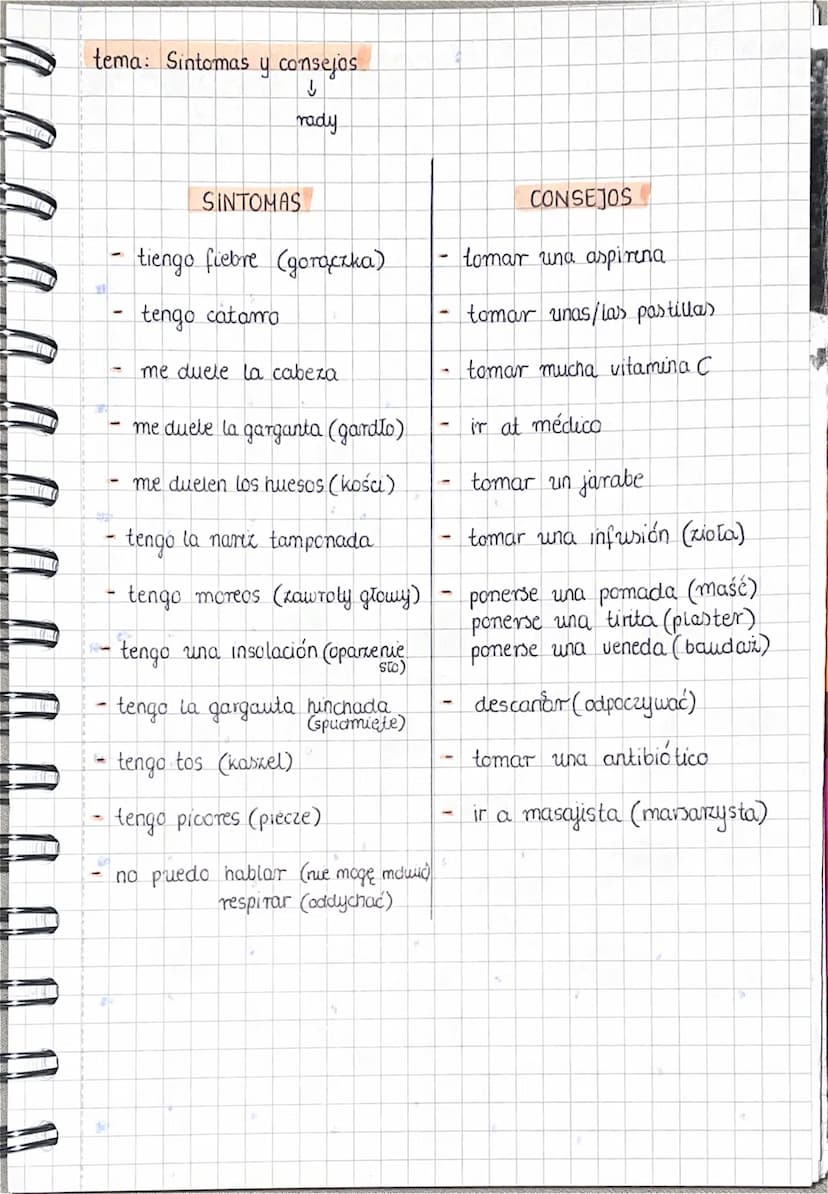 tema: Sintomas y consejos
↓
rady
SINTOMAS
- tiengo fiebre (gorączka)
- tengo catarro
- me duele la cabeza
- me duele la garganta (gardło)
- me duelen los huesos (kości)
- tengo la nariz tamponada
- tengo moreos (zawroty głowy)
- tengo una insolación (oparzenie
sło)
- tengo la garganta hinchada
(spuchnięte)
- tengo tos (kaszel)
- tengo picores (piecze)
- no puedo hablar (nie mogę mówić)
respirar (oddychać)
CONSEJOS
- tomar una aspirina
- tomar unas/las pastillas
- tomar mucha vitamina C
- ir al médico
- tomar un jarabe
- tomar una infusión (zioła)
- ponerse una pomada (maść)
ponerse una tirita (plaster)
ponerse una veneda (bandaż)
- descansar (odpoczywać)
- tomar una antibiótico
- ir a masajista (masarzysta)